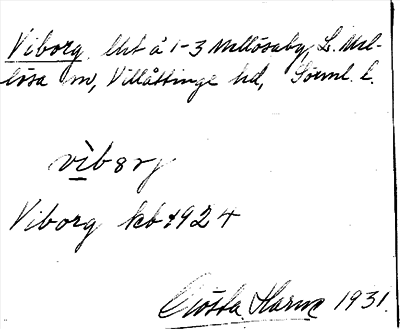 Viborg. lht å 1-3 Mellösaby, L. Mel-
lösa sn, Villåttinge hd, Sörml. l.
vìbɔrj
Viborg kb 1924
Gösta Harne 1931.